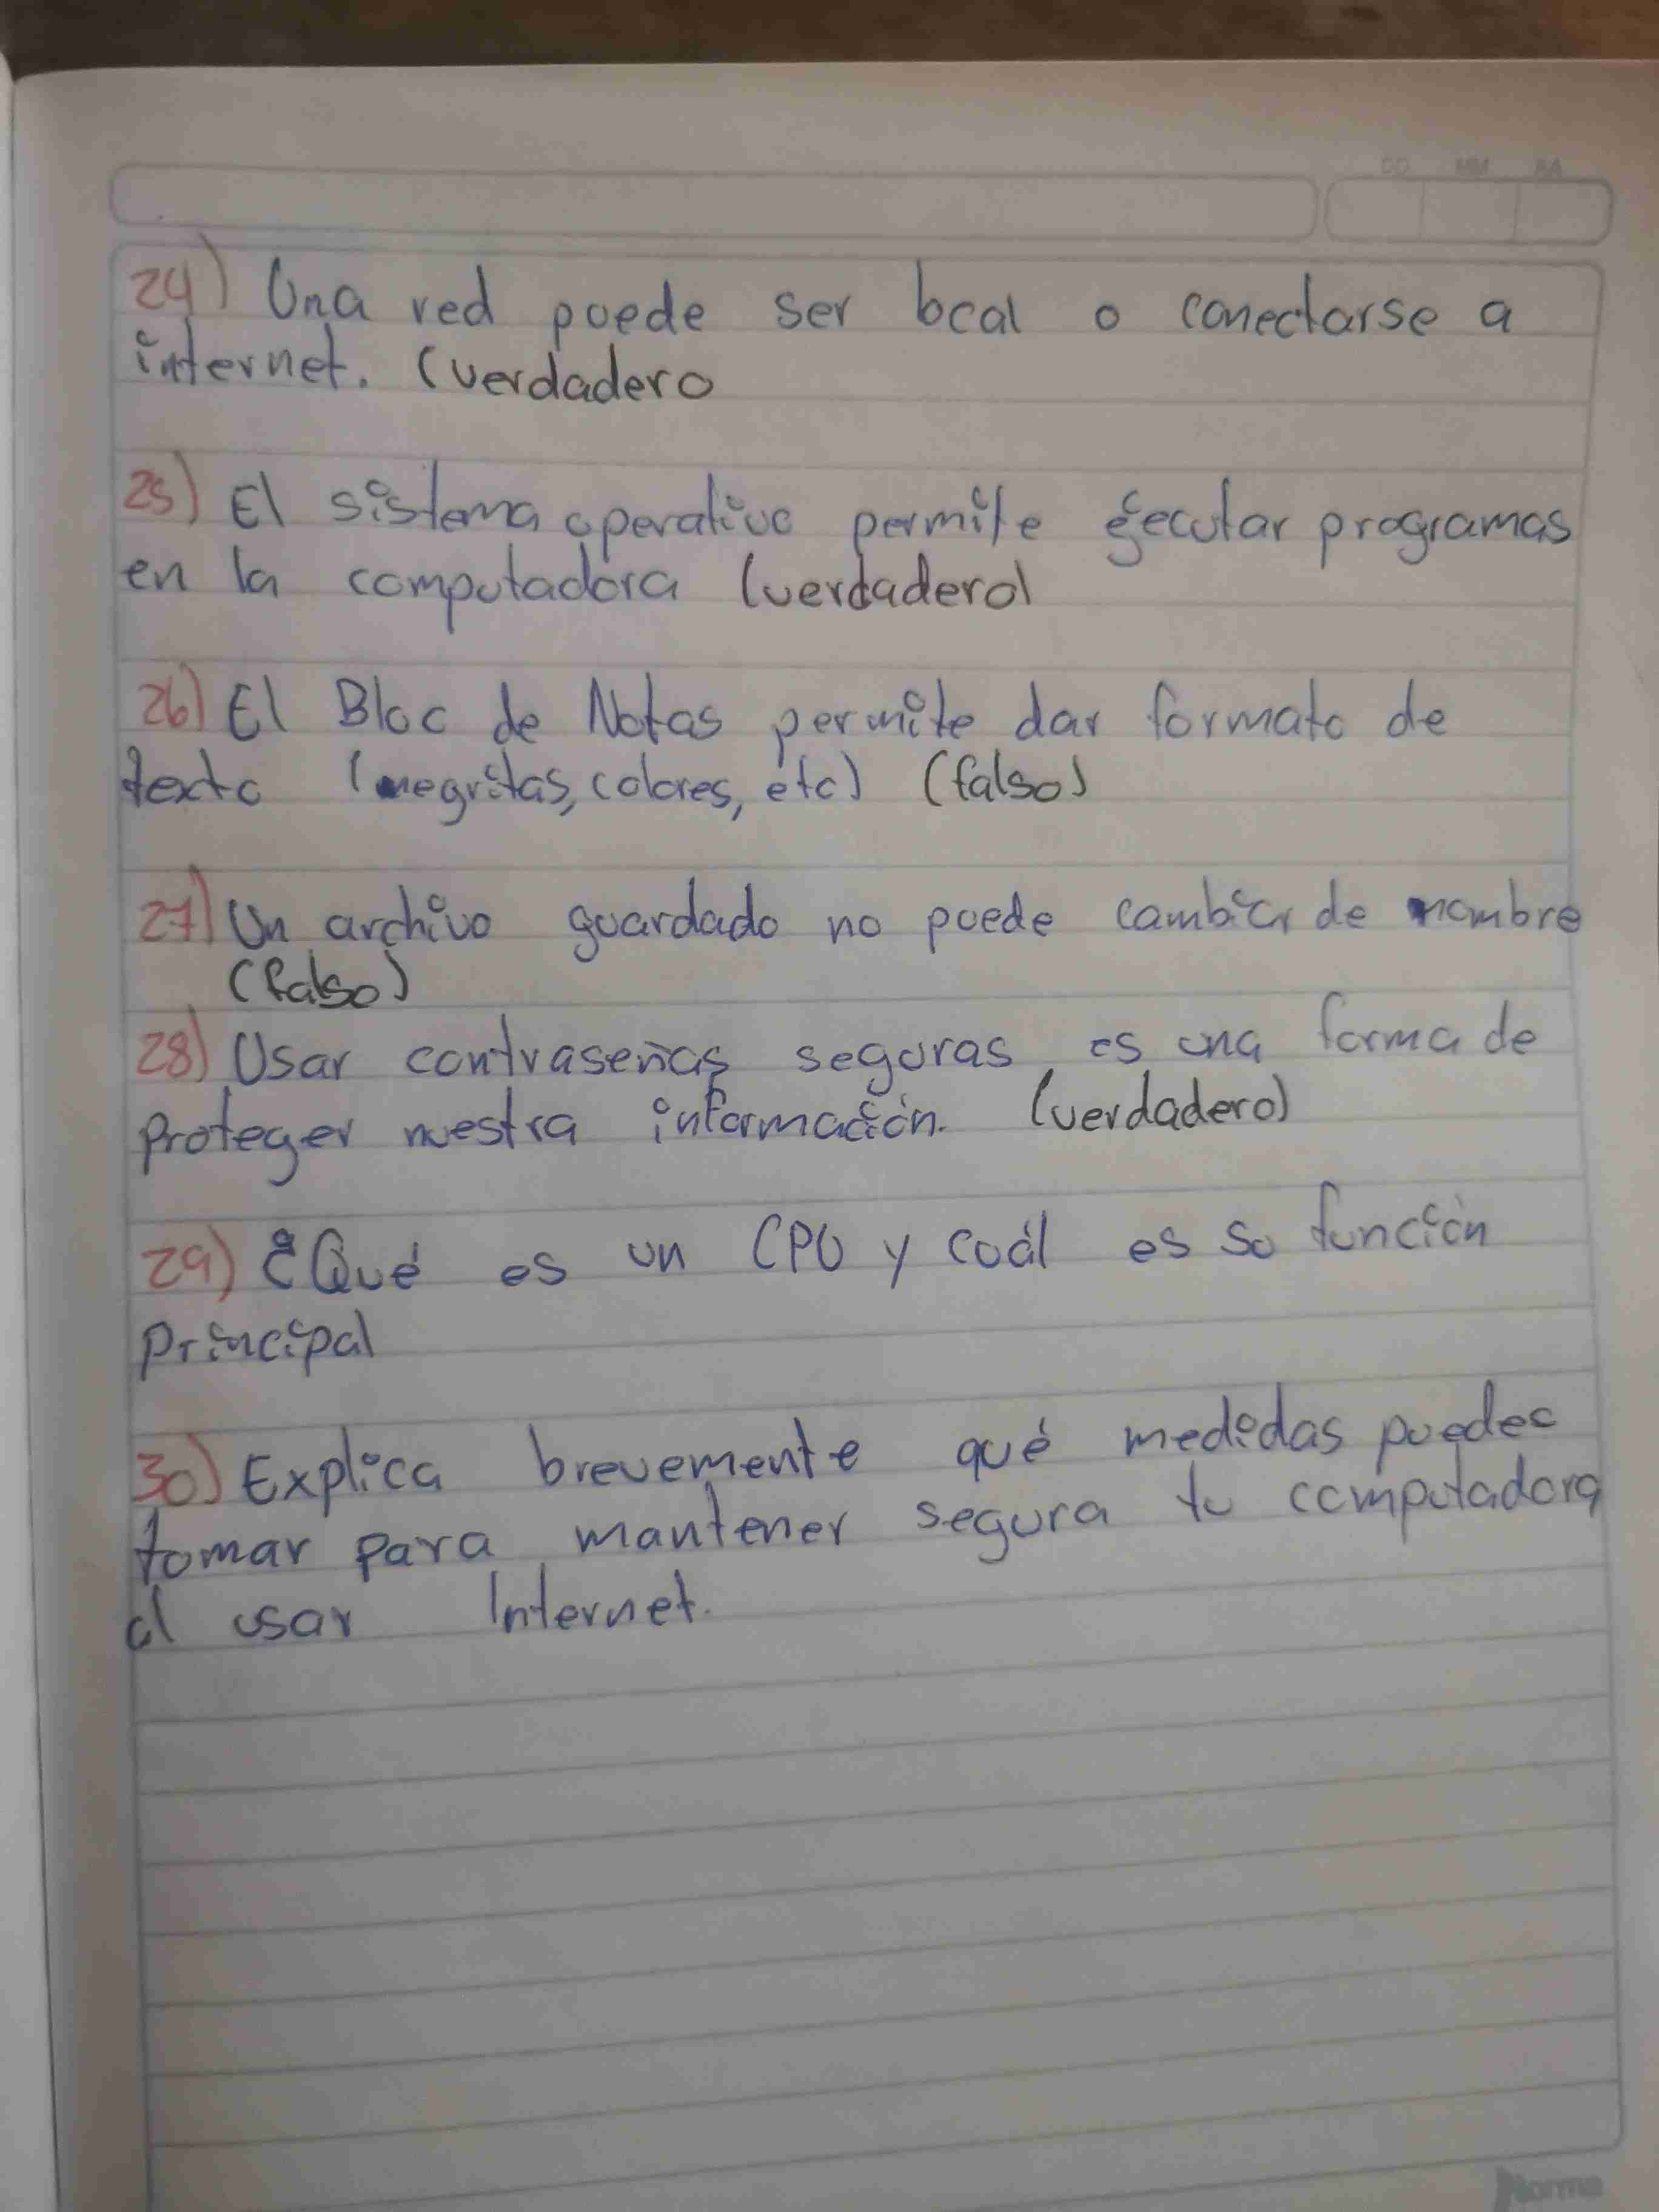 DD MM AA
24) Una red puede ser local o conectarse a
internet. (verdadero
25) El sistema operativo permite ejecutar programas
en la computadora (verdadero)
26) El Bloc de Notas permite dar formato de
texto (negritas, colores, etc) (falso)
27) Un archivo guardado no puede cambiar de nombre
(falso)
28) Usar contraseñas seguras es una forma de
proteger nuestra información. (verdadero)
29) ¿Qué es un CPU y cuál es su función
principal
30) Explica brevemente qué medidas puedes
tomar para mantener segura tu computadora
al usar Internet.
Norma